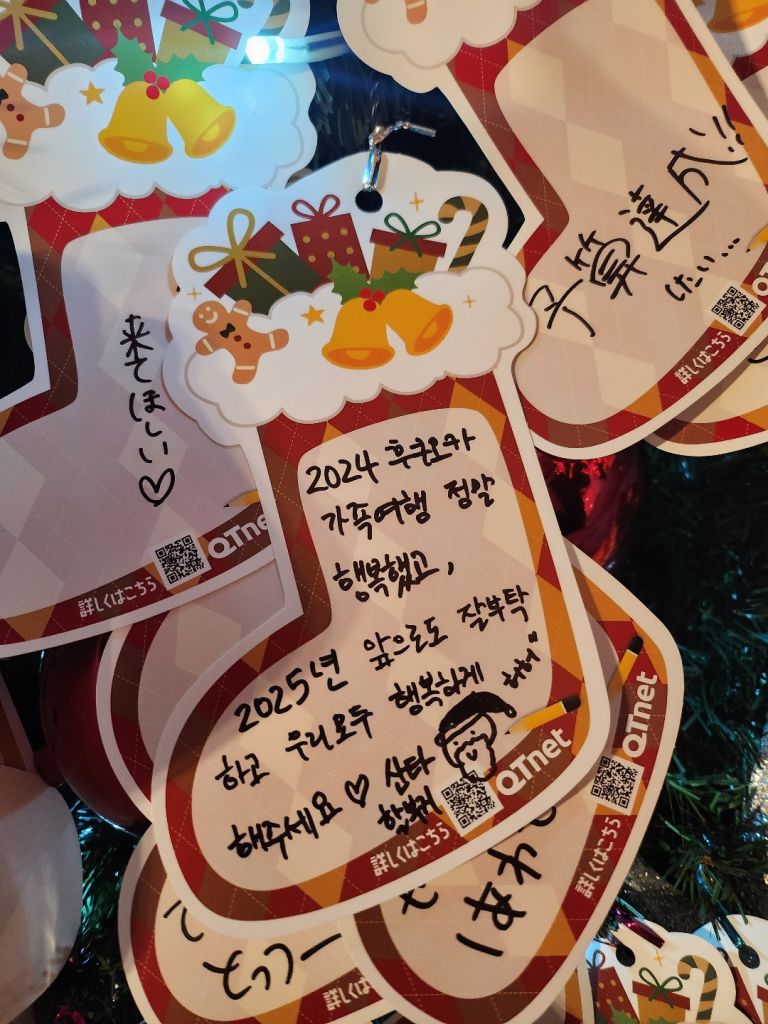 予算達成!!
したい...
詳しくはこちら
来てほしい♡
詳しくはこちら
QTne
2024 후쿠오카
가족여행 정말
행복했고,
2025년 앞으로도 잘부탁
하고 우리모두 행복하게
해주세요 ♡ 산타
할부지
허허"
詳しくはこちら
QTnet
詳しくはこちら
QTnet